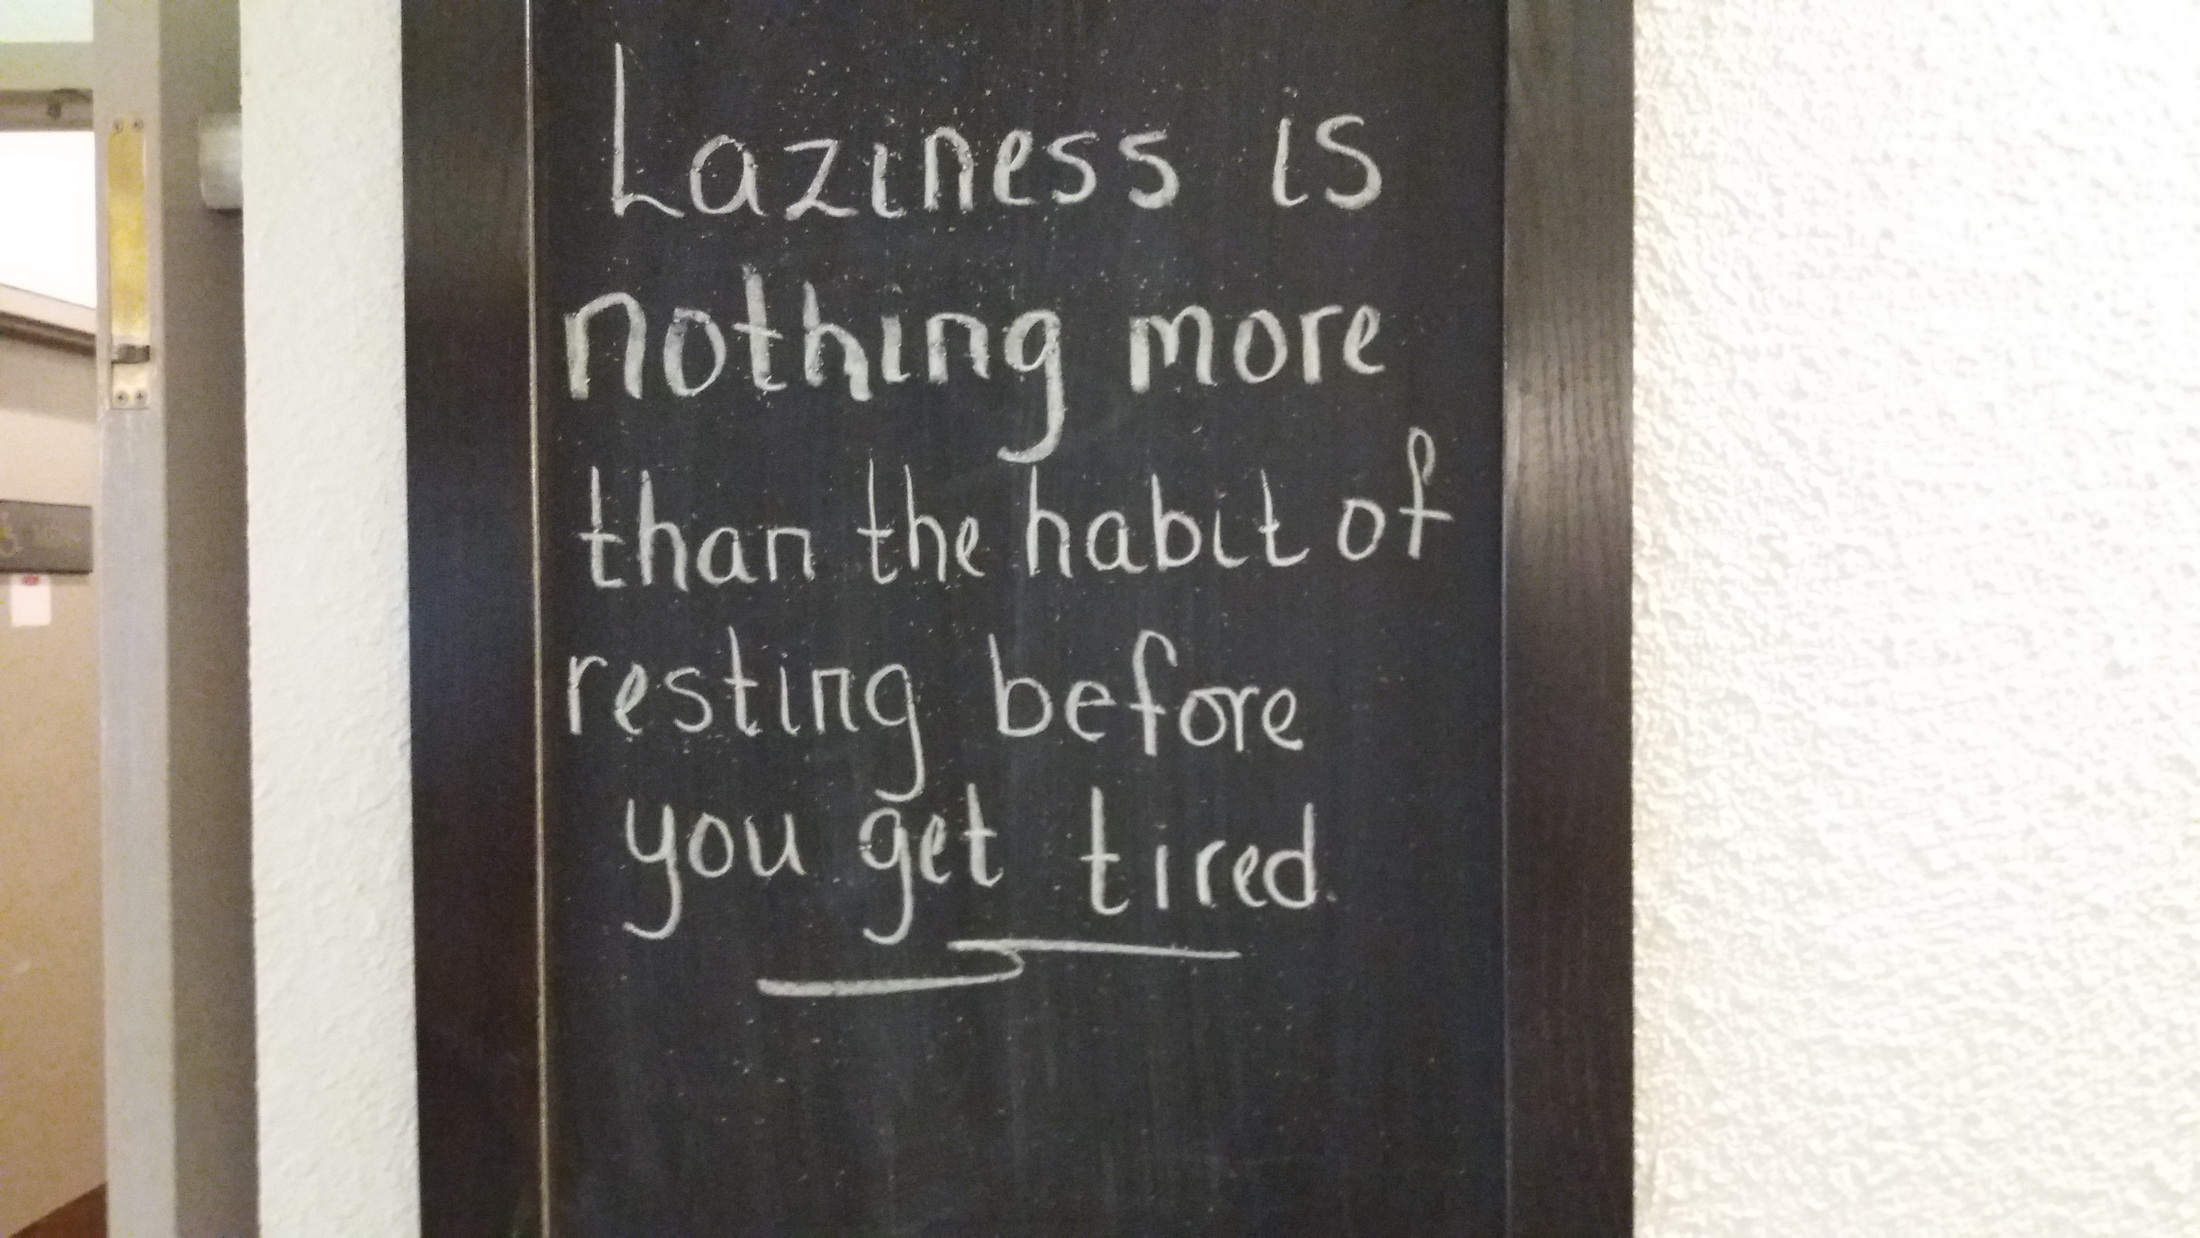 Laziness is
nothing more
than the habit of
resting before
you get tired.